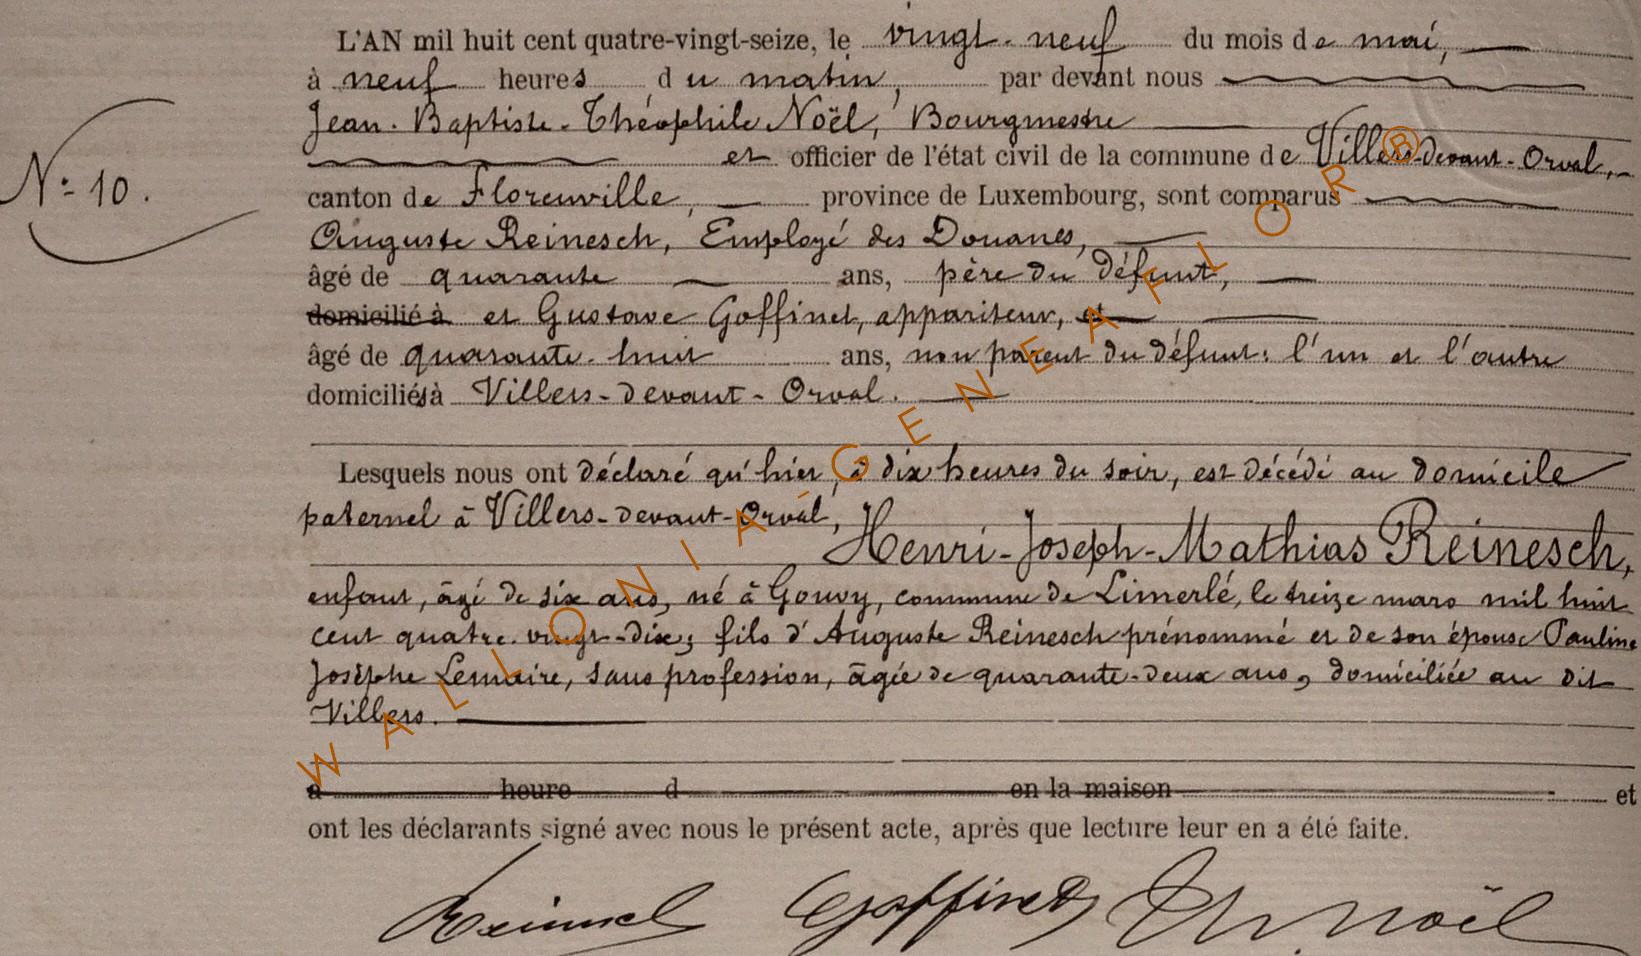 L'AN mil huit cent quatre-vingt-seize, le vingt-neuf du mois de mai,
à neuf heures du matin, par devant nous
Jean-Baptiste-Théophile Noël, Bourgmestre
et officier de l'état civil de la commune de Villers-devant-Orval,
N° 10.
canton de Florenville, province de Luxembourg, sont comparus
Auguste Reinesch, Employé des Douanes,
âgé de quarante ans, père du défunt,
domicilié à et Gustave Goffinet, appariteur, et
âgé de quarante-huit ans, non parent du défunt: l'un et l'autre
domiciliés à Villers-devant-Orval.
Lesquels nous ont déclaré qu'hier, à dix heures du soir, est décédé au domicile
paternel à Villers-devant-Orval,
Henri-Joseph-Mathias Reinesch,
enfant, âgé de six ans, né à Gouvy, commune de Limerlé, le treize mars mil huit
cent quatre-vingt-dix; fils d'Auguste Reinesch prénommé et de son épouse Pauline
Josèphe Lemaire, sans profession, âgée de quarante-deux ans, domiciliée au dit
Villers.
à heure d en la maison et
ont les déclarants signé avec nous le présent acte, après que lecture leur en a été faite.
Reinesch Goffinet Th. Noël
WALLONIA-GENEAFLOR®